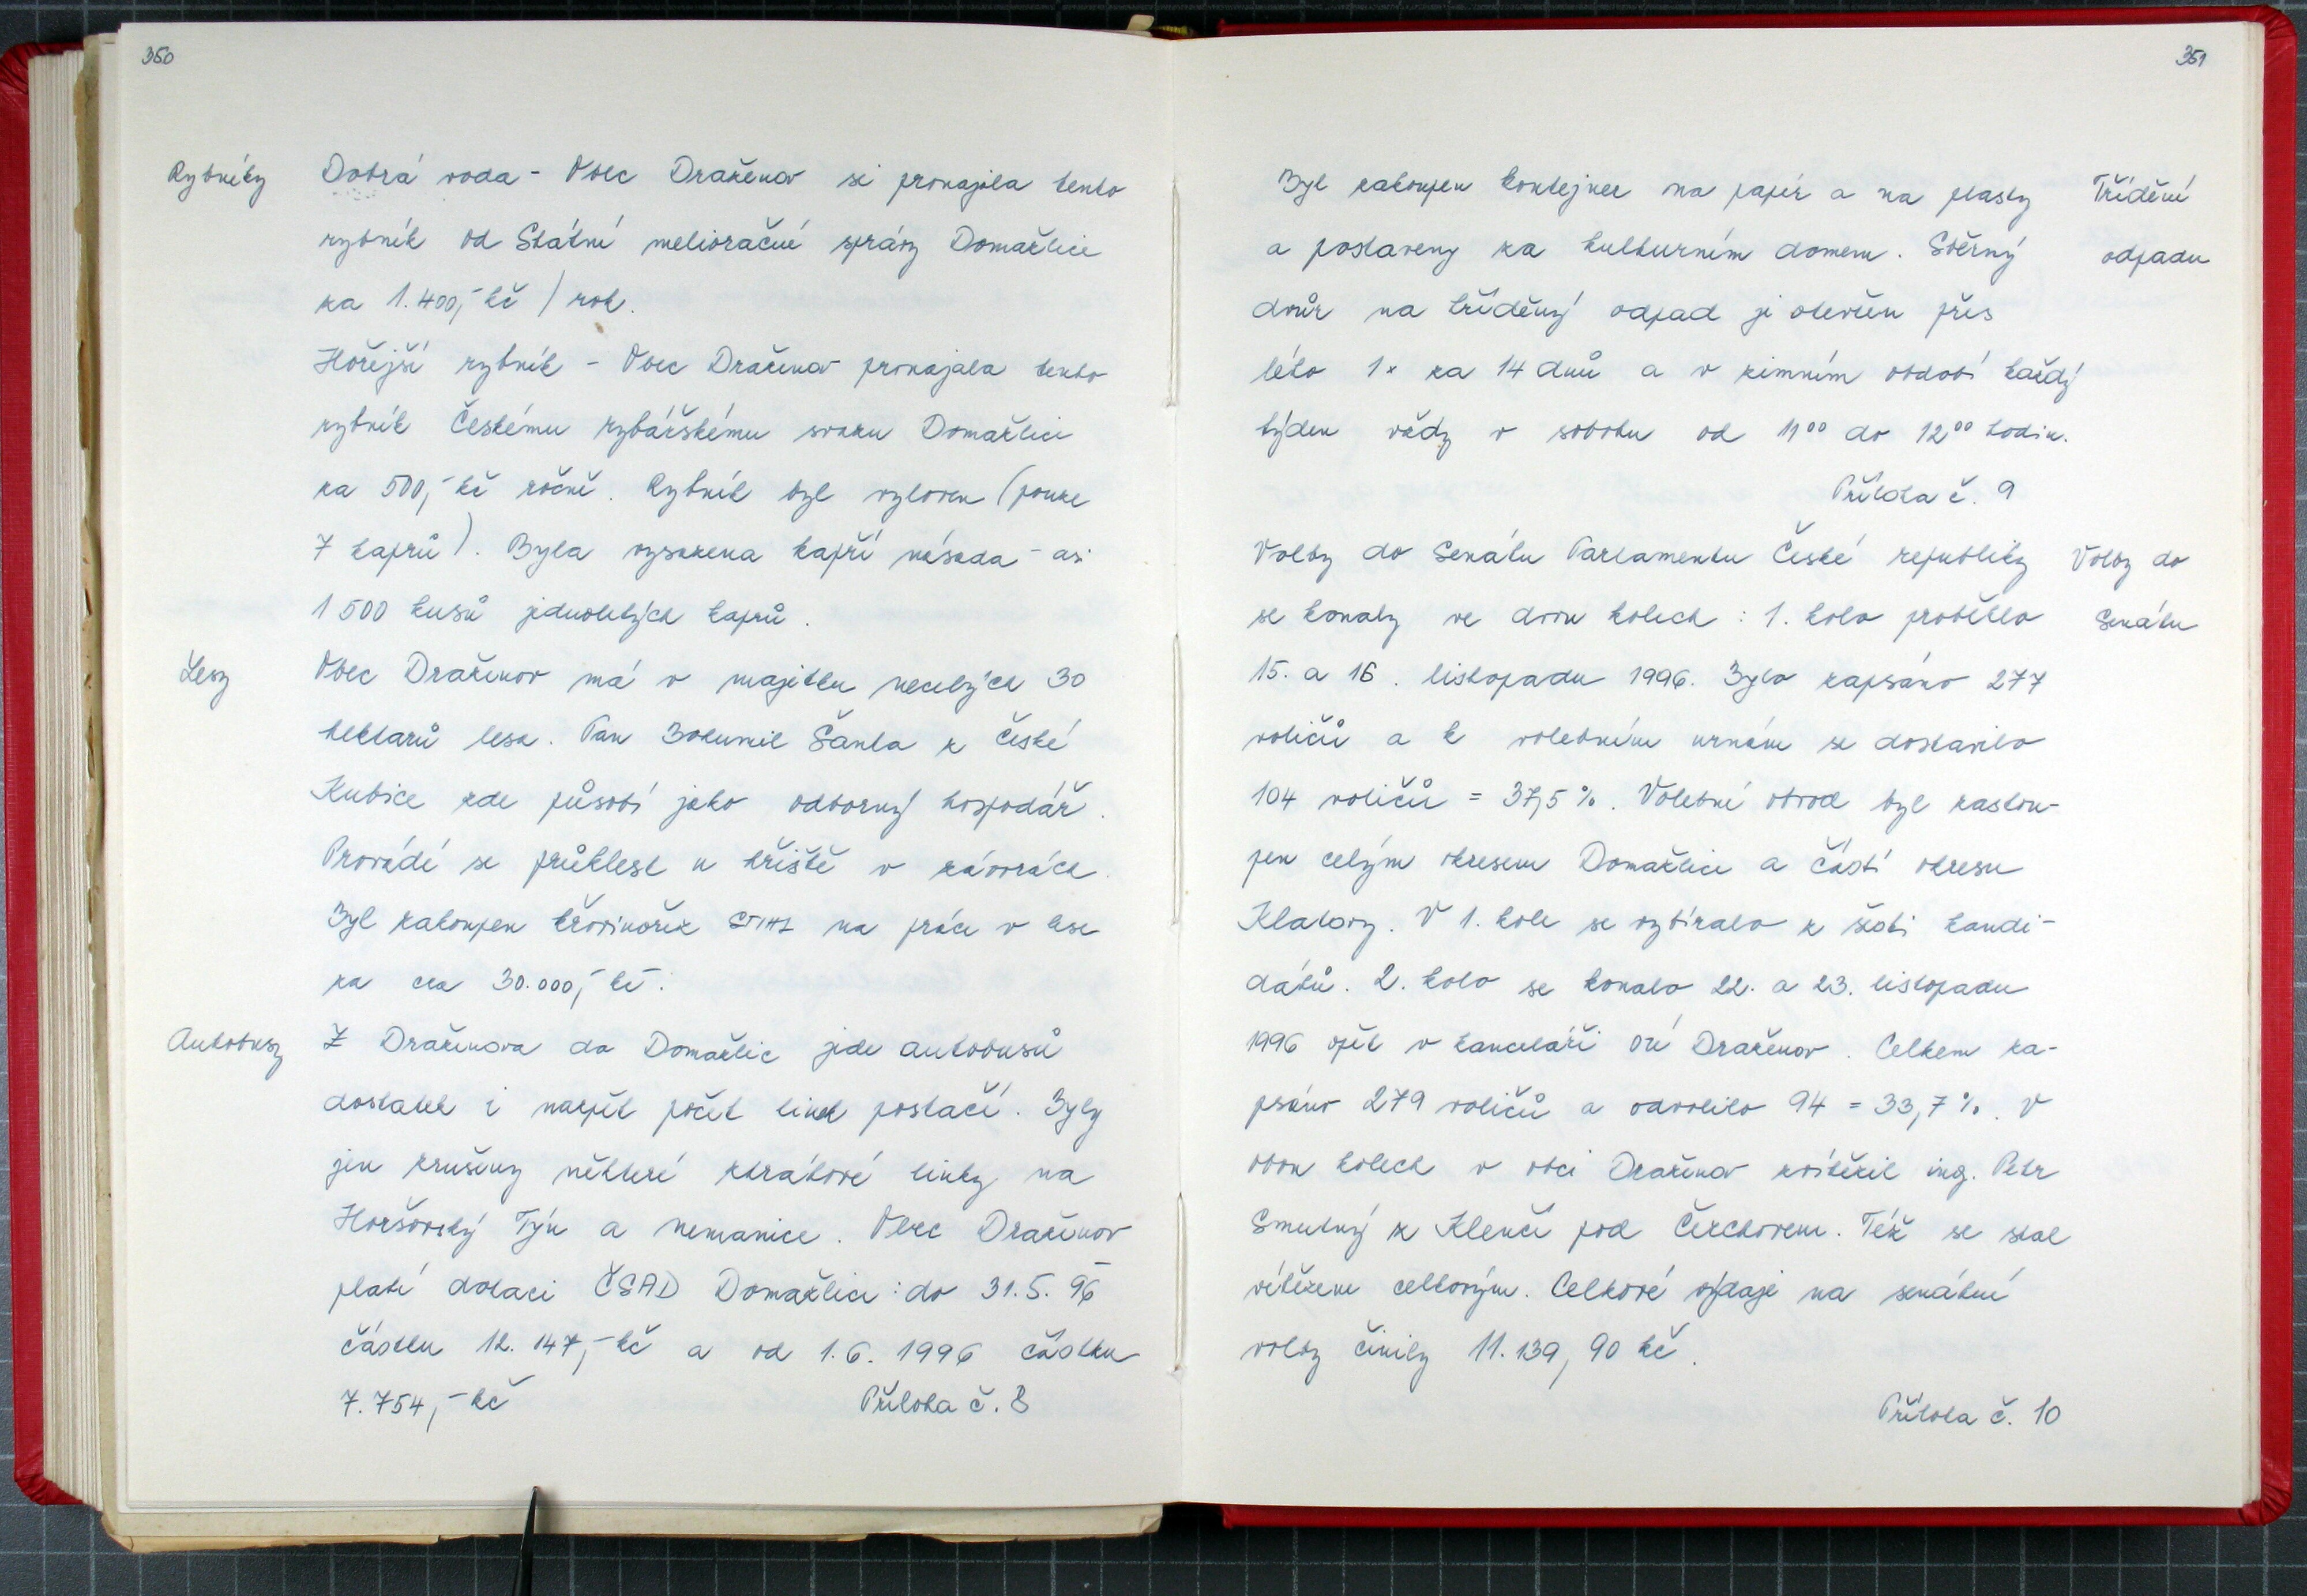 350
Rybníky
Dobrá voda - Obec Draženov si pronajala tento
rybník od Státní meliorační správy Domažlice
za 1.400,- kč / rok.
Hořejší rybník - Obec Draženov pronajala tento
rybník Českému rybářskému svazu Domažlice
za 500,- kč ročně. Rybník byl vyloven (pouze
7 kaprů). Byla vysazena kapří násada - asi
1 500 kusů jednoletých kaprů.
Lesy
Obec Draženov má v majetku necelých 30
hektarů lesa. Pan Bohumil Šanta z České
Kubice zde působí jako odborný hospodář.
Provádí se průklest u hřiště v závorách.
Byl zakoupen křovinořez STIHL na práce v lese
za cca 30.000,- kč.
Autobusy
Z Draženova do Domažlic jede autobusů
dostatek i nazpět počet linek postačí. Byly
jen zrušeny některé ztrátové linky na
Horšovský Týn a Nemanice. Obec Draženov
platí dotaci ČSAD Domažlice: do 31.5. 96
částku 12.147,- kč a od 1.6. 1996 částku
7.754,- kč Příloha č. 8
351
Byl zakoupen kontejner na papír a na plasty
Třídění
a postaveny za kulturním domem. Sběrný
odpadu
dvůr na tříděný odpad je otevřen přes
léto 1x za 14 dnů a v zimním období každý
týden vždy v sobotu od 11⁰⁰ do 12⁰⁰ hodin.
Příloha č. 9
Volby do Senátu Parlamentu České republiky
Volby do
se konaly ve dvou kolech: 1. kolo proběhlo
Senátu
15. a 16. listopadu 1996. Bylo zapsáno 277
voličů a k volebním urnám se dostavilo
104 voličů = 37,5 %. Volební obvod byl zastou-
pen celým okresem Domažlice a částí okresu
Klatovy. V 1. kole se vybíralo z šesti kandi-
dátů. 2. kolo se konalo 22. a 23. listopadu
1996 opět v kanceláři OÚ Draženov. Celkem za-
psáno 279 voličů a odvolilo 94 = 33,7 %. V
obou kolech v obci Draženov zvítězil ing. Petr
Smutný z Klenčí pod Čerchovem. Též se stal
vítězem celkovým. Celkové výdaje na senátní
volby činily 11.139,90 kč.
Příloha č. 10